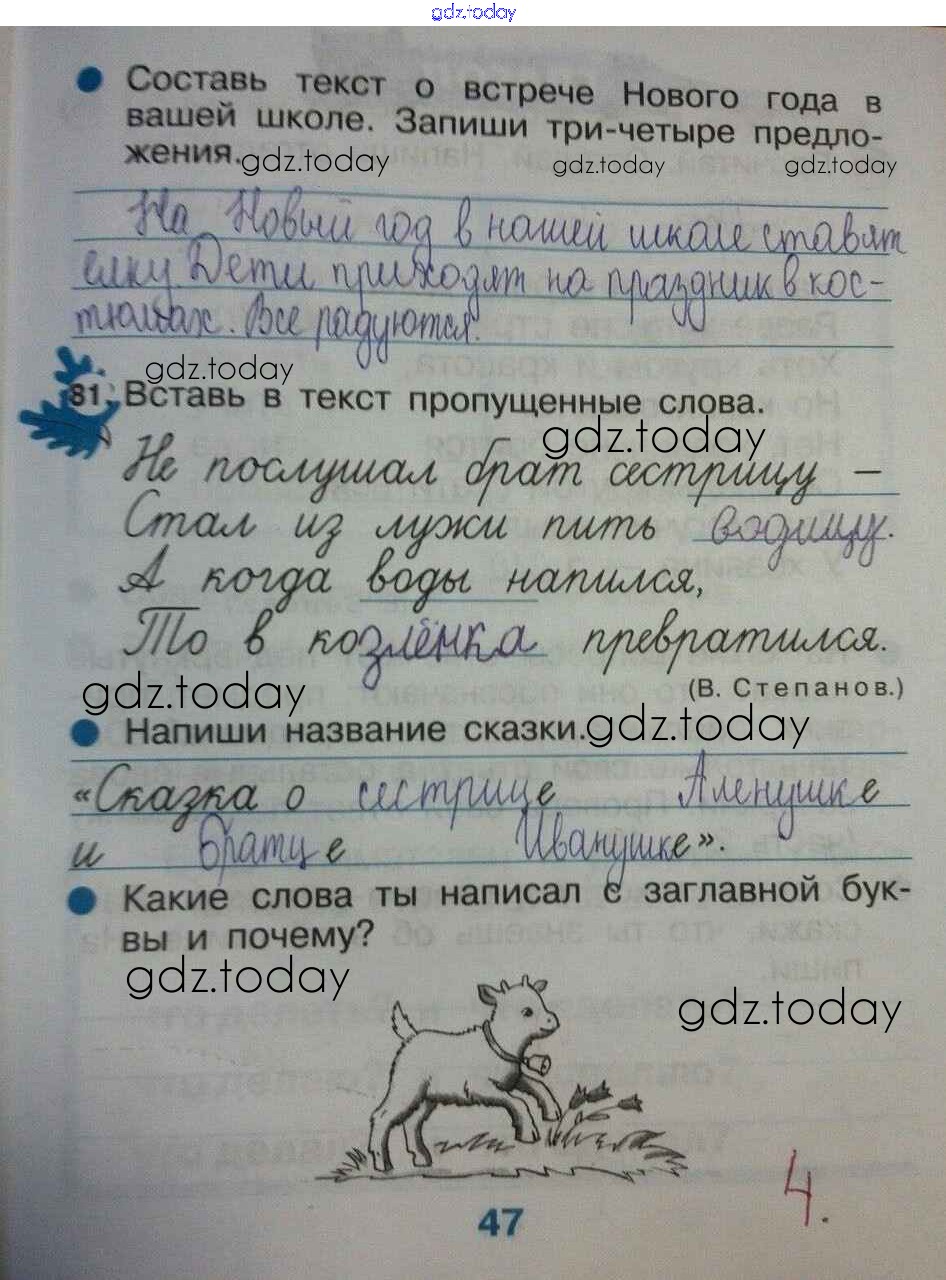 gdz.today
Составь текст о встрече Нового года в
вашей школе. Запиши три-четыре предло-
жения.
gdz.today gdz.today gdz.today
На Новый год в нашей школе ставят
елку Дети приходят на праздник в кос-
тюмах. Все радуются.
gdz.today
81. Вставь в текст пропущенные слова.
gdz.today
Не послушал брат сестрицу –
Стал из лужи пить водицу.
А когда воды напился,
То в козлёнка превратился.
(В. Степанов.)
gdz.today
Напиши название сказки.
gdz.today
«Сказка о сестрице Аленушке
и братце Иванушке».
Какие слова ты написал с заглавной бук-
вы и почему?
gdz.today
gdz.today
4.
47